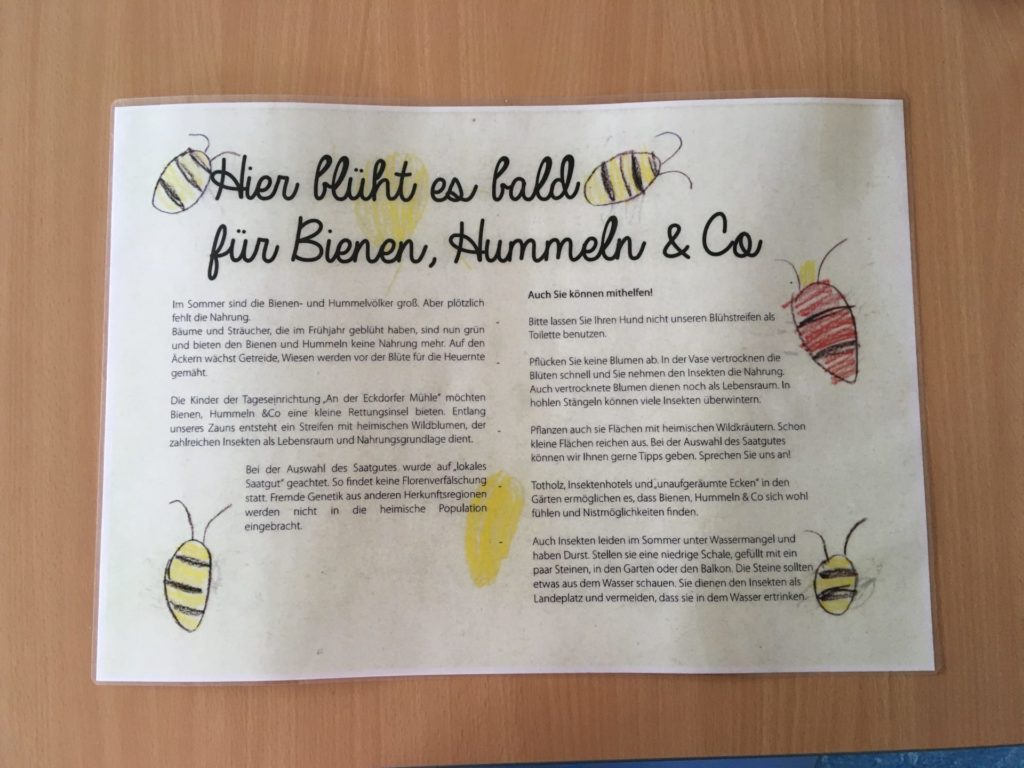 Hier blüht es bald
für Bienen, Hummeln & Co
Im Sommer sind die Bienen- und Hummelvölker groß. Aber plötzlich
fehlt die Nahrung.
Bäume und Sträucher, die im Frühjahr geblüht haben, sind nun grün
und bieten den Bienen und Hummeln keine Nahrung mehr. Auf den
Äckern wächst Getreide, Wiesen werden vor der Blüte für die Heuernte
gemäht.
Die Kinder der Tageseinrichtung „An der Eckdorfer Mühle" möchten
Bienen, Hummeln &Co eine kleine Rettungsinsel bieten. Entlang
unseres Zauns entsteht ein Streifen mit heimischen Wildblumen, der
zahlreichen Insekten als Lebensraum und Nahrungsgrundlage dient.
Bei der Auswahl des Saatgutes wurde auf „lokales
Saatgut" geachtet. So findet keine Florenverfälschung
statt. Fremde Genetik aus anderen Herkunftsregionen
werden nicht in die heimische Population
eingebracht.
Auch Sie können mithelfen!
- Bitte lassen Sie Ihren Hund nicht unseren Blühstreifen als
Toilette benutzen.
- Pflücken Sie keine Blumen ab. In der Vase vertrocknen die
Blüten schnell und Sie nehmen den Insekten die Nahrung.
Auch vertrocknete Blumen dienen noch als Lebensraum. In
hohlen Stängeln können viele Insekten überwintern.
- Pflanzen auch sie Flächen mit heimischen Wildkräutern. Schon
kleine Flächen reichen aus. Bei der Auswahl des Saatgutes
können wir Ihnen gerne Tipps geben. Sprechen Sie uns an!
- Totholz, Insektenhotels und „unaufgeräumte Ecken" in den
Gärten ermöglichen es, dass Bienen, Hummeln & Co sich wohl
fühlen und Nistmöglichkeiten finden.
- Auch Insekten leiden im Sommer unter Wassermangel und
haben Durst. Stellen sie eine niedrige Schale, gefüllt mit ein
paar Steinen, in den Garten oder den Balkon. Die Steine sollten
etwas aus dem Wasser schauen. Sie dienen den Insekten als
Landeplatz und vermeiden, dass sie in dem Wasser ertrinken.